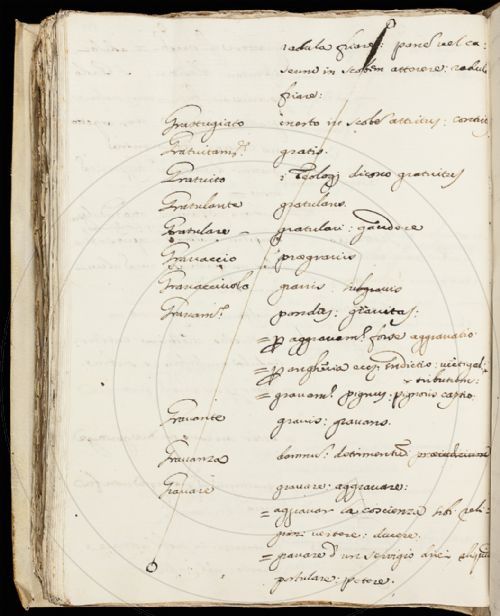 radula friare: panem vel ca=
seum in scobem atterere: radul
friare:
Grattugiato in scobem attritus:
Gratuitam.te gratis.
Gratuito : Teologi dicono gratuitus
Gratulante gratulans.
Gratulare gratulari: gaudere
Gravaccio praegravis
Gravacciuolo gravis subgravis
Gravam.to pondus: gravitas:
= p aggravam.to forse aggravatio
= p angheria indictio: vectigal
tributum:
= gravam.to pignus: pignoris captio.
Gravante gravis: gravans.
Gravanza damnum: detrimentum
Gravare gravare: aggravare:
= aggravar la coscienza reli
vertere: ducere.
= gravare d'un servigio
postulare: petere.